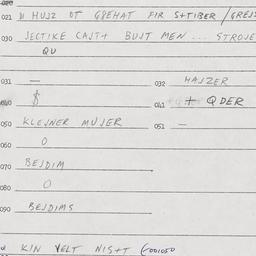 021 HUJZ OT GREHAT FIR S++IBER /GREJS
030 JECTIKE CAJT+ BUJT MEN ... STROJE
QU
031 —
032 HAJZER
040 $
041 + QDER
050 KLEJNER MUJER
051 —
060 O
070 BEJDIM
080 O
090 BEJDIMS
KIN VELT NIS+T (-001050